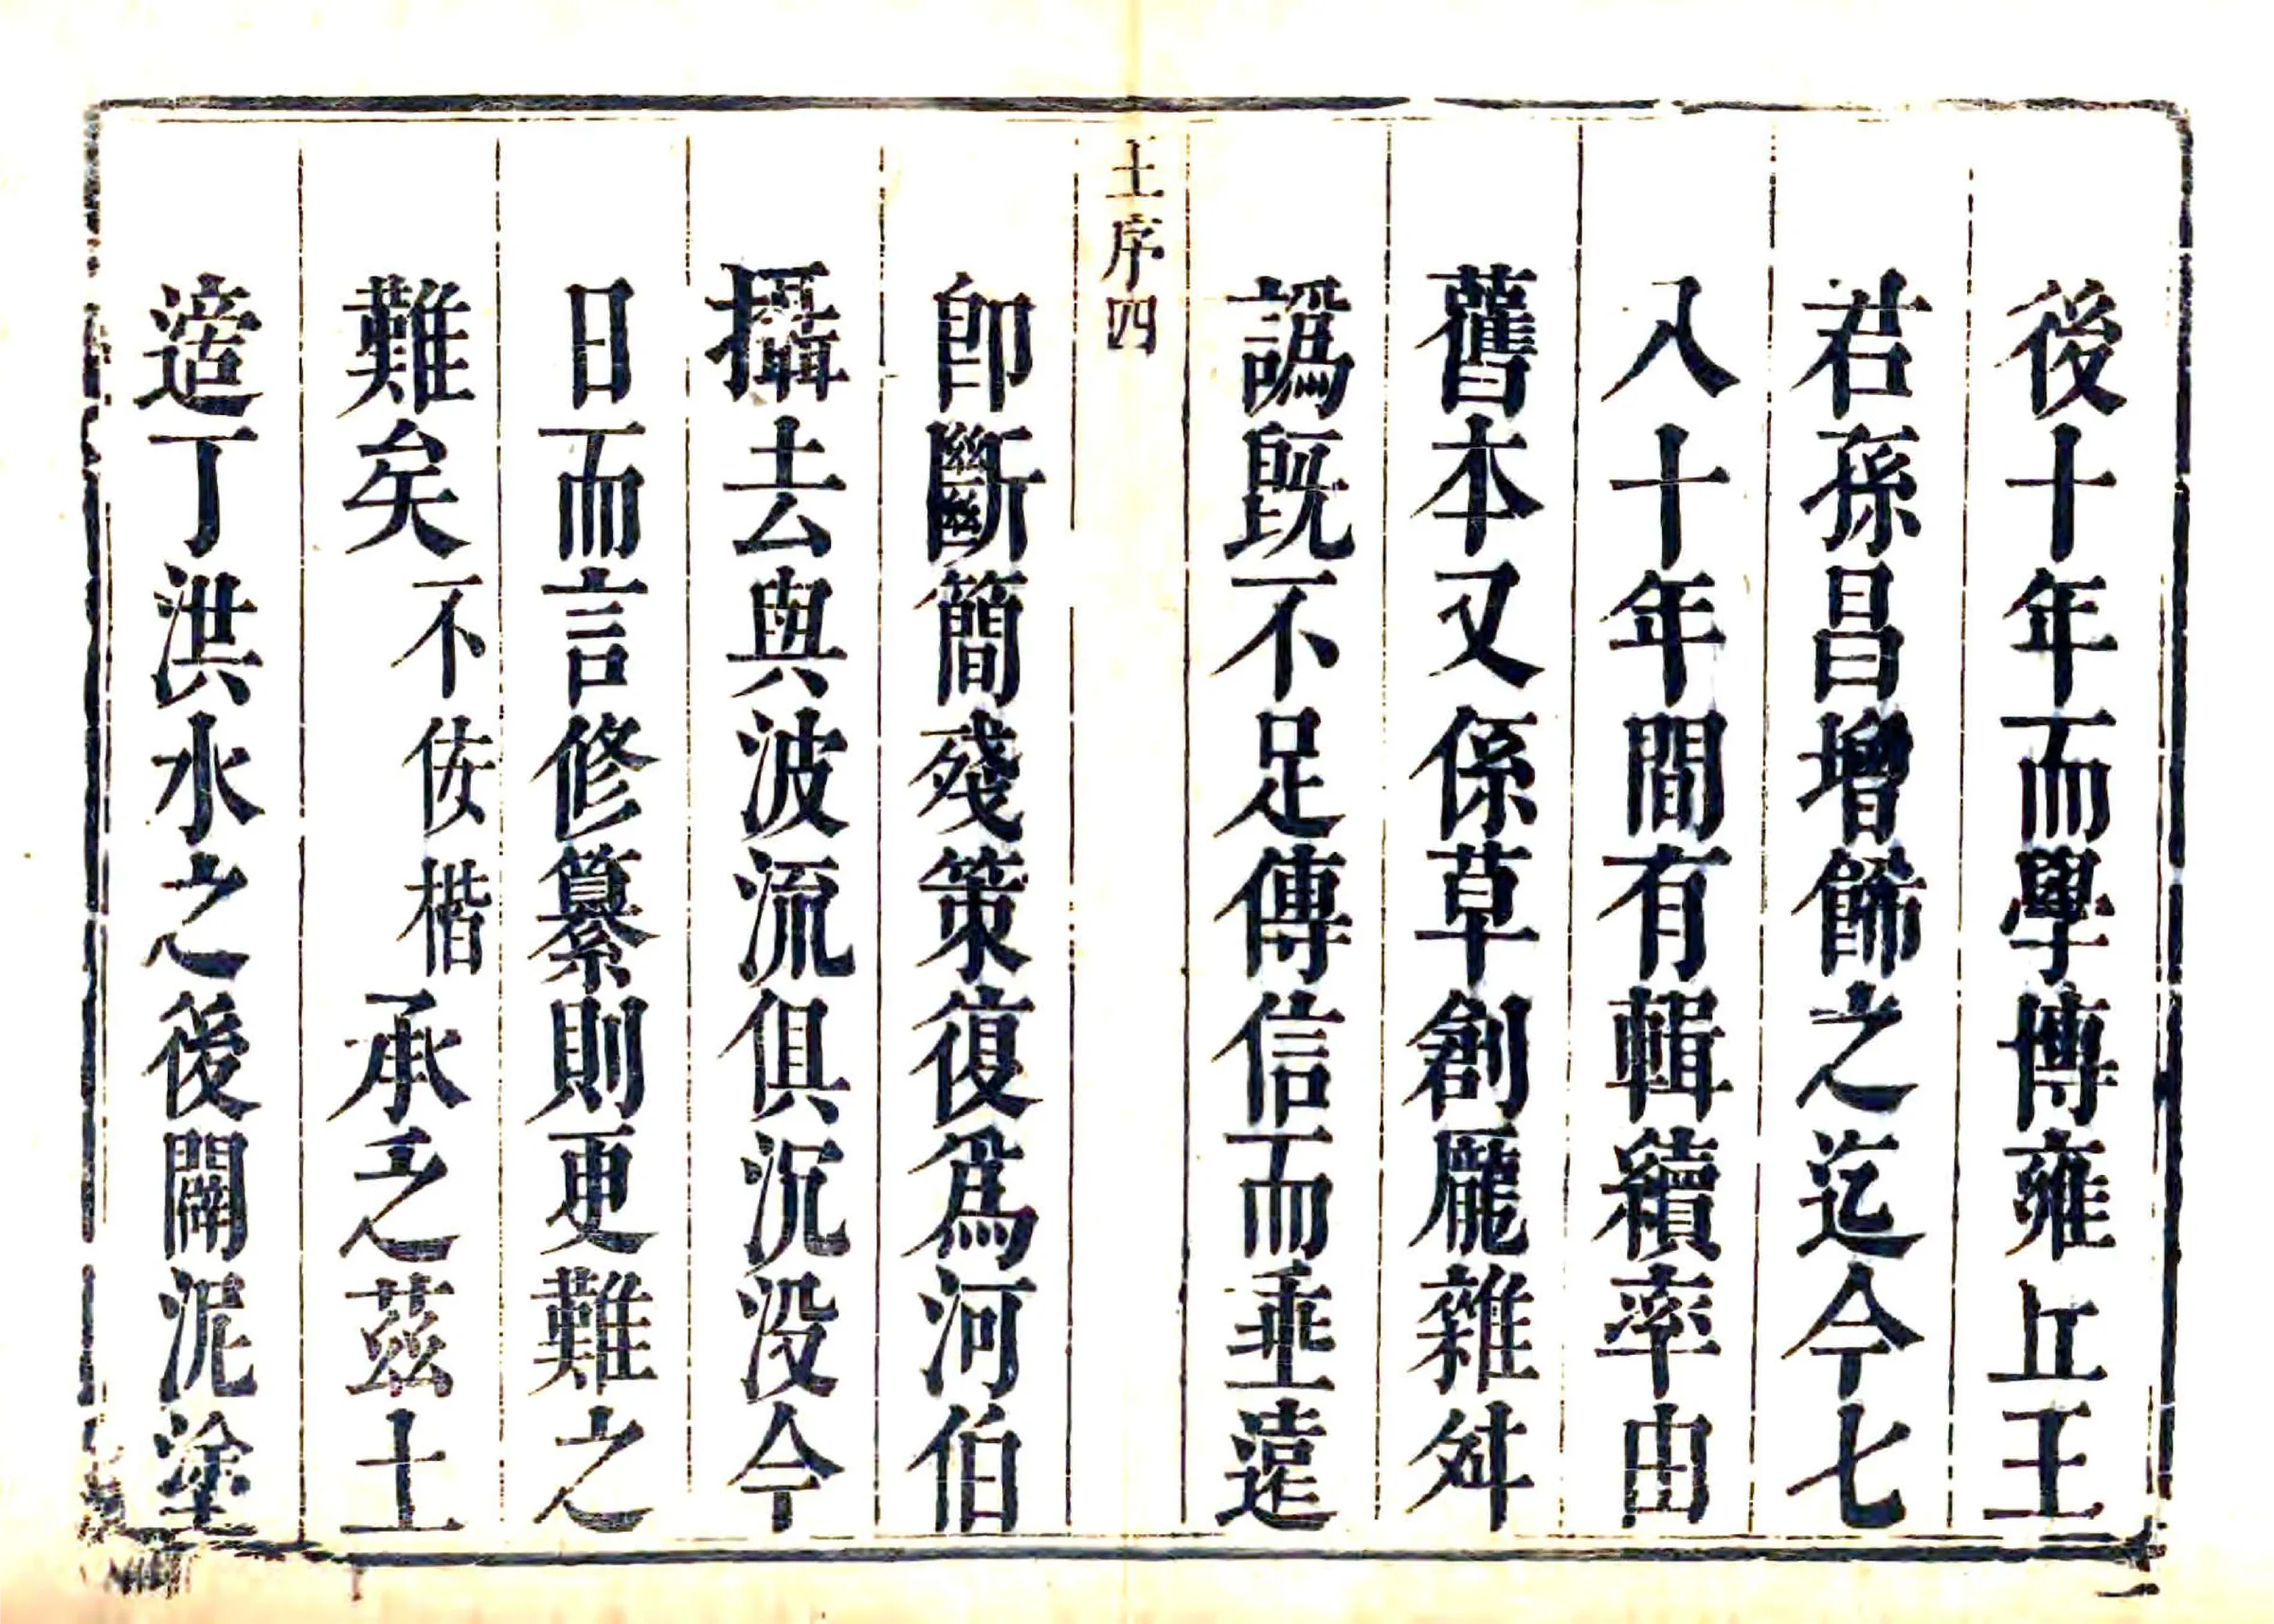 後十年而學博雍丘王
君孫昌增飾之迄今七
八十年間有輯續率由
舊本又係草創龐雜舛
譌旣不足傳信而垂遠
王序四
卽斷簡殘策復爲河伯
攝去與波流俱沉没今
日而言修纂則更難之
難矣不佞楷承乏茲土
適丁洪水之後闢泥塗